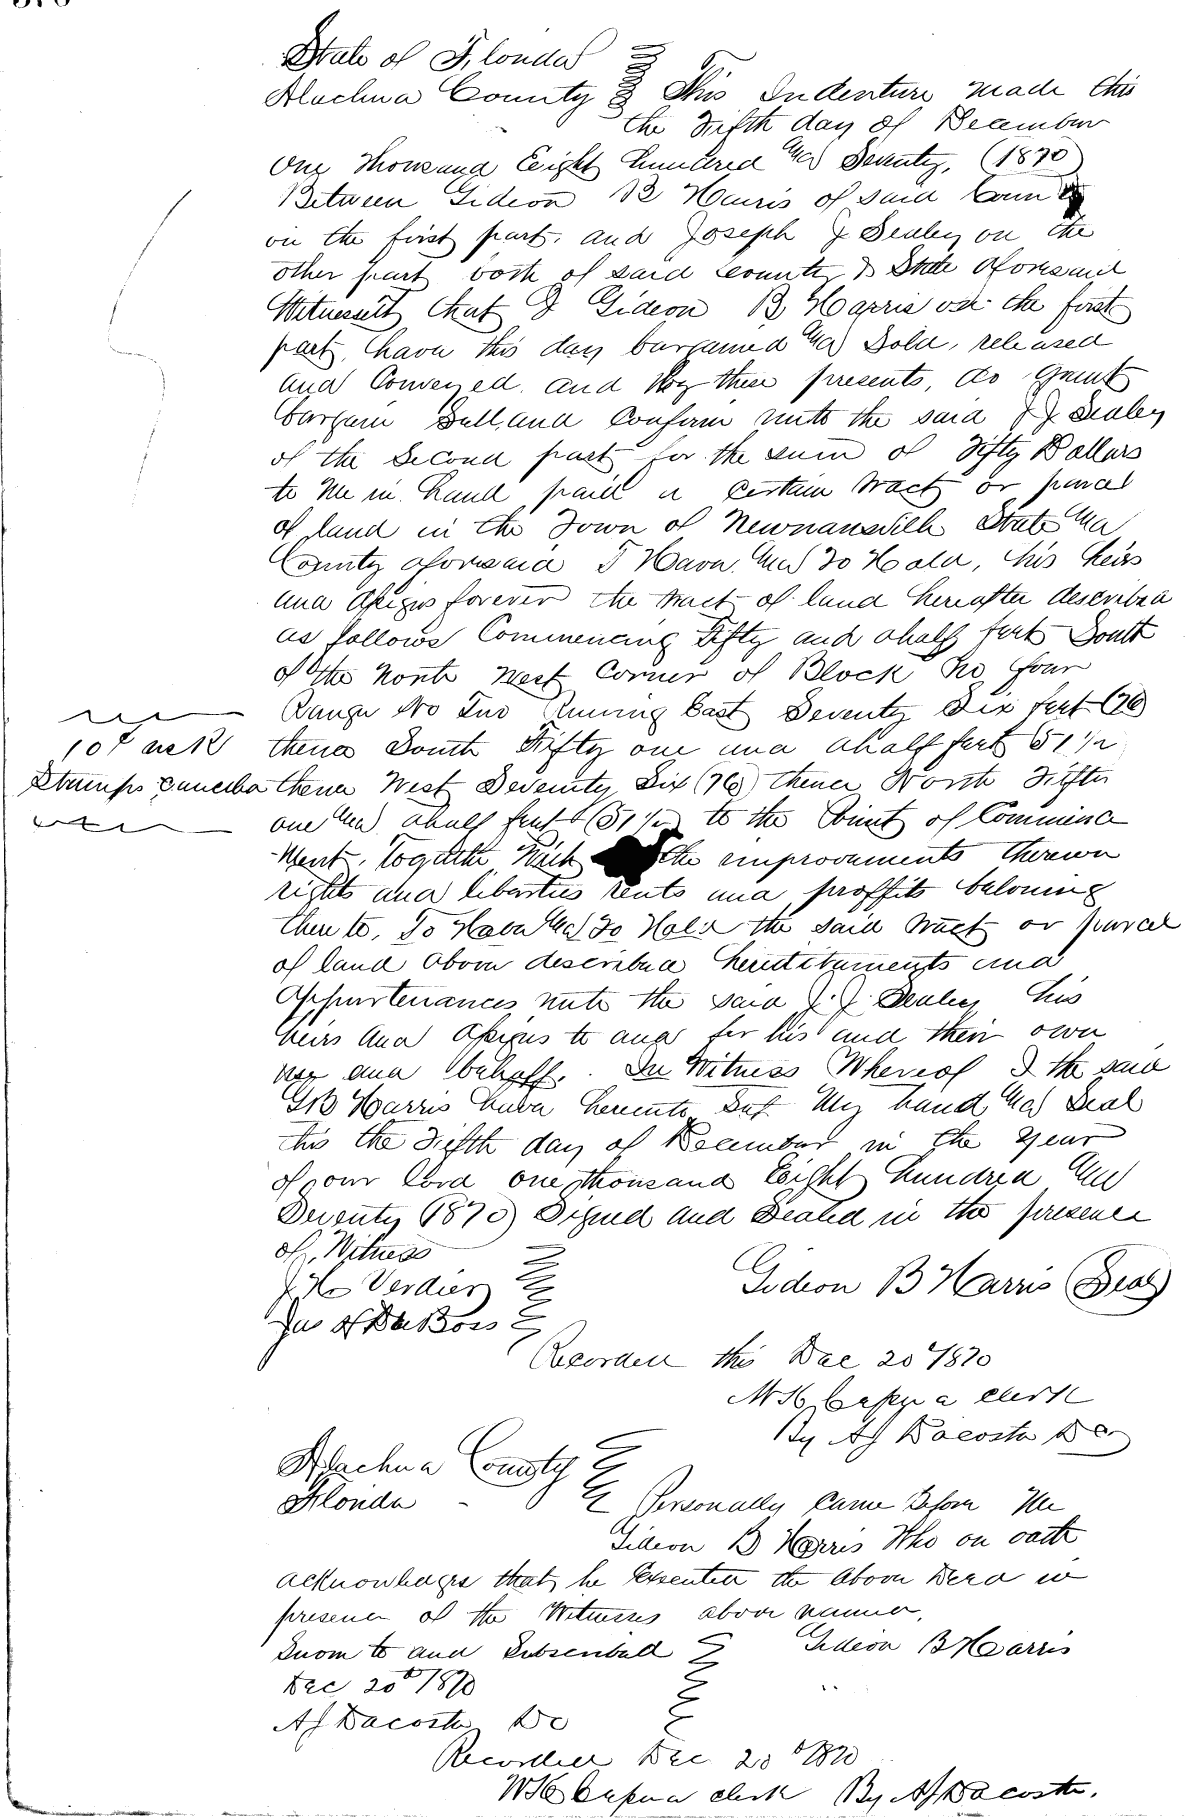 State of Florida
Alachua County This Indenture made this
the Fifth day of December
One Thousand Eeight hundred and Seventy, (1870)
Between Gideon B Harris of said County
on the first part. and Joseph J Sealey on the
other part both of said County & State aforesaid
Witnesseth that I Gideon B Harris on the first
part, have this day bargained and Sold, released
and Conveyed and by these presents, do grant
bargain Sell, and Confirm unto the said J J Sealey
of the Second part for the sum of Fifty Dollars
to Me in hand paid a certain tract or parcel
of land in the Town of Newnansville State and
County aforesaid T Have and To Hold, his heirs
and assigns forever the tract of land hereafter described
as follows Commencing Fifty and a half feet South
of the North West Corner of Block No four
Range No Two Running East Seventy Six feet (76)
thence South Fifty one and a half feet 51 1/2
thence West Seventy Six (76) thence North Fifty
one and a half feet (51 1/2) to the Point of Commence
Ment, Together With the improvements thereon
rights and liberties rents and proffits beloning
thereto, To Have and To Hold the said tract or parcel
of land above described hereditaments and
Appurtenances unto the said J. J. Sealey his
heirs and assigns to and for his and their own
use and behoff. In Witness Whereof I the said
G B Harris have hereunto Set My hand and Seal
this the Fifth day of December in the Year
of our Lord one thousand Eeight hundred and
Seventy (1870) Signed and Sealed in the presence
of, Witness
J H Verdier Gideon B Harris (Seal)
Jas A DuBoss
Recorded this Dec 20th 1870
10 t
Stamps canceled
W K Cessna clerk
By AJ Dacosta DC
Alachua County
Florida Personally Came Before Me
Gideon B Harris Who on oath
acknowledges that he Executed the above Deed in
presence of the Witnesses above named.
Sworn to and Subscribed Gideon B Harris
Dec 20th 1870
AJ Dacosta DC
Recorded Dec 20th 1870
W K Cessna clerk By AJ Dacosta.